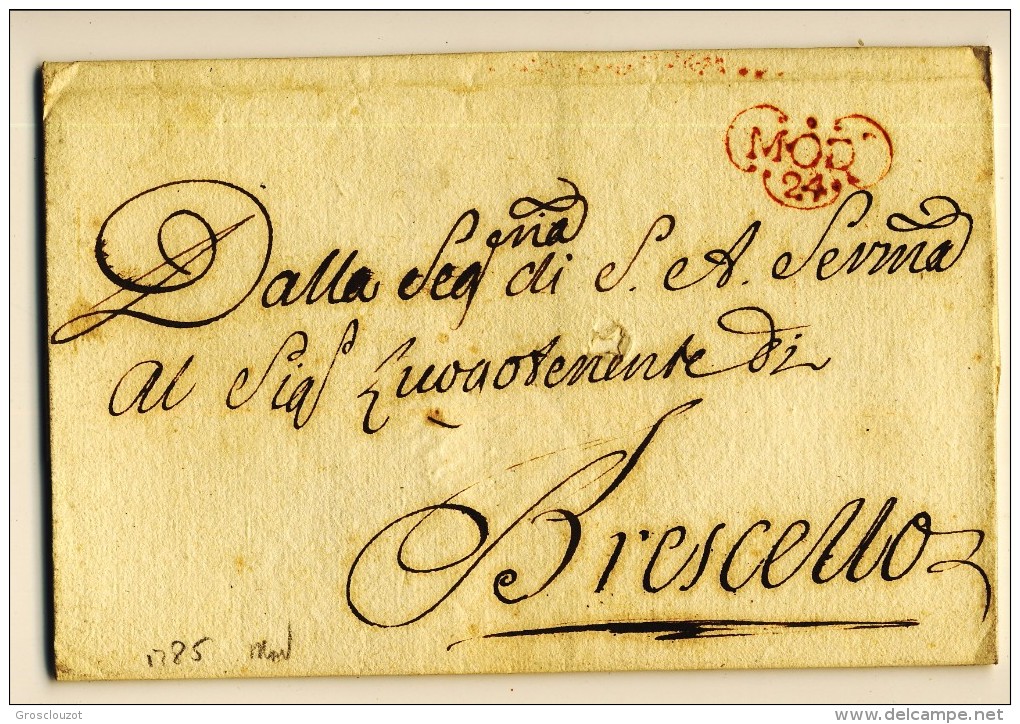 MOD
24
Dalla Segria di S. A. Serma
Al Sigr Luogotenente di
Brescello
1785 Mod
Grosclouzot
delcampe.net